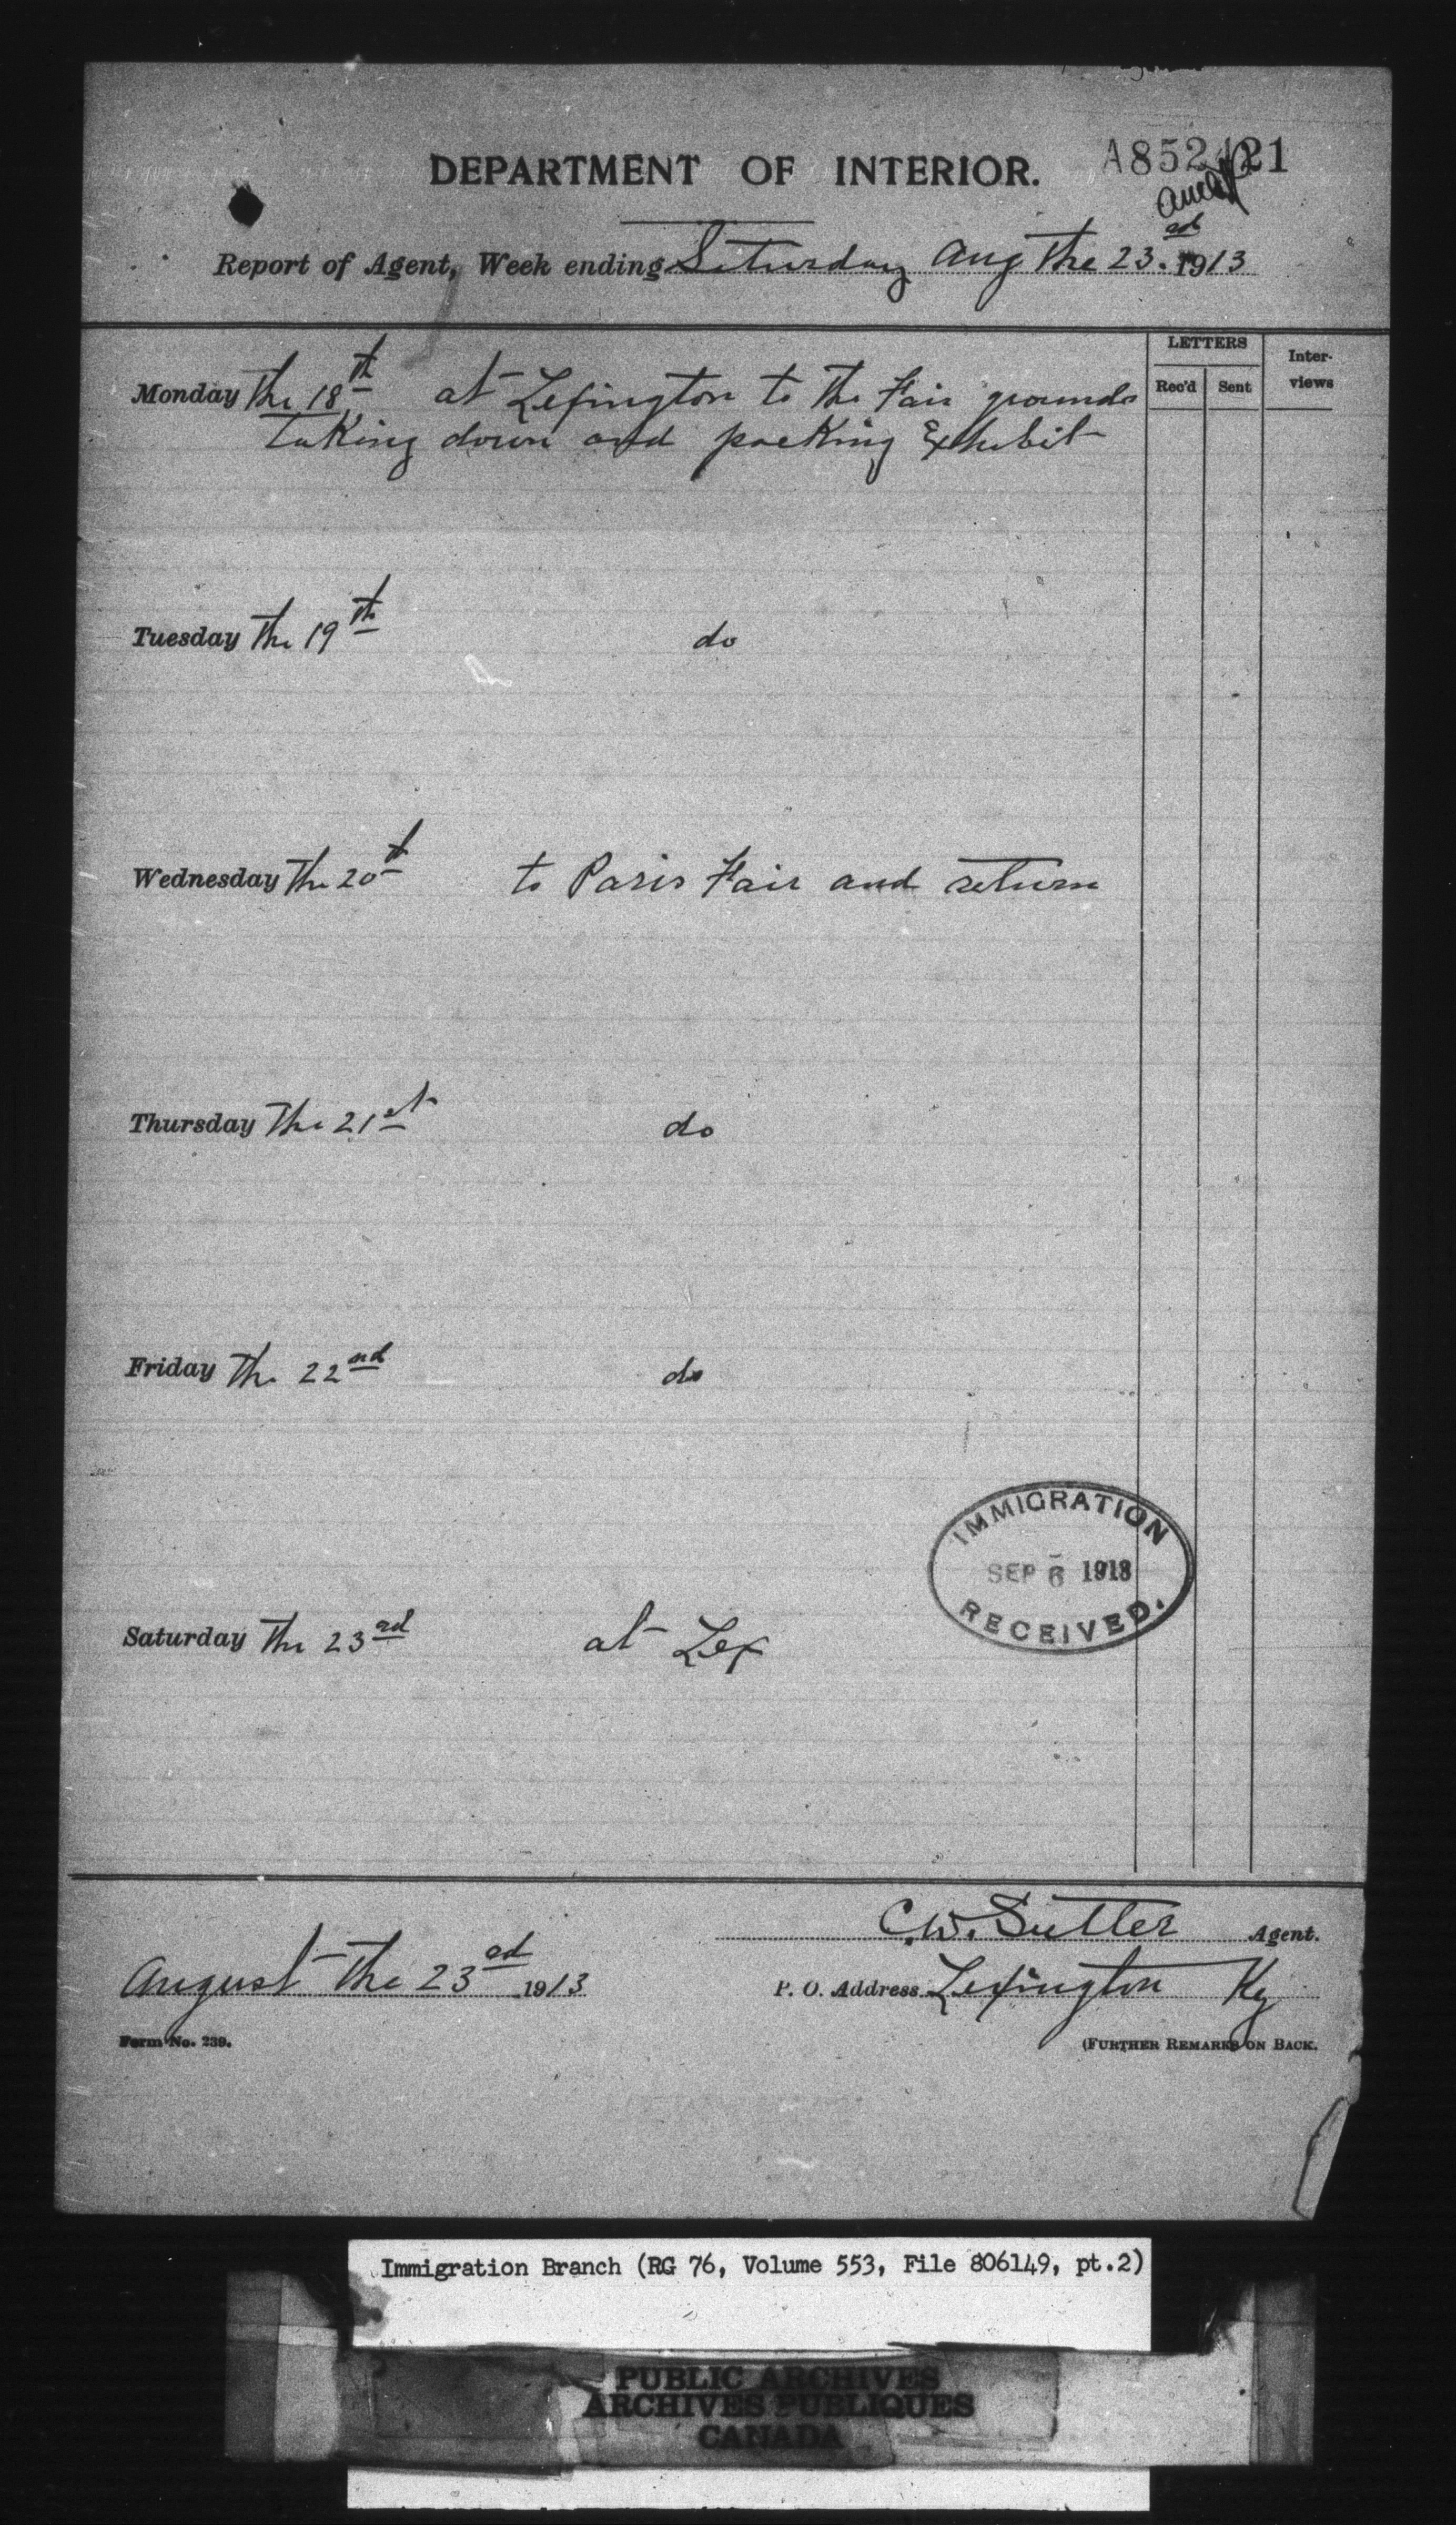 DEPARTMENT OF INTERIOR.
Report of Agent, Week ending Saturday Aug the 23rd 1913
LETTERS
Inter-
views
Rec'd Sent
Monday the 18th at Lexington to the Fair grounds
taking down and packing Exhibit
Tuesday the 19th do
Wednesday the 20th to Paris Fair and return
Thursday the 21st do
Friday the 22nd do
IMMIGRATION
SEP 6 1913
RECEIVED.
Saturday the 23rd at Lex
C.W. Sutter Agent.
August the 23rd 1913
P. O. Address Lexington Ky
Form No. 239.
(FURTHER REMARKS ON BACK.
Immigration Branch (RG 76, Volume 553, File 806149, pt.2)
PUBLIC ARCHIVES
ARCHIVES PUBLIQUES
CANADA